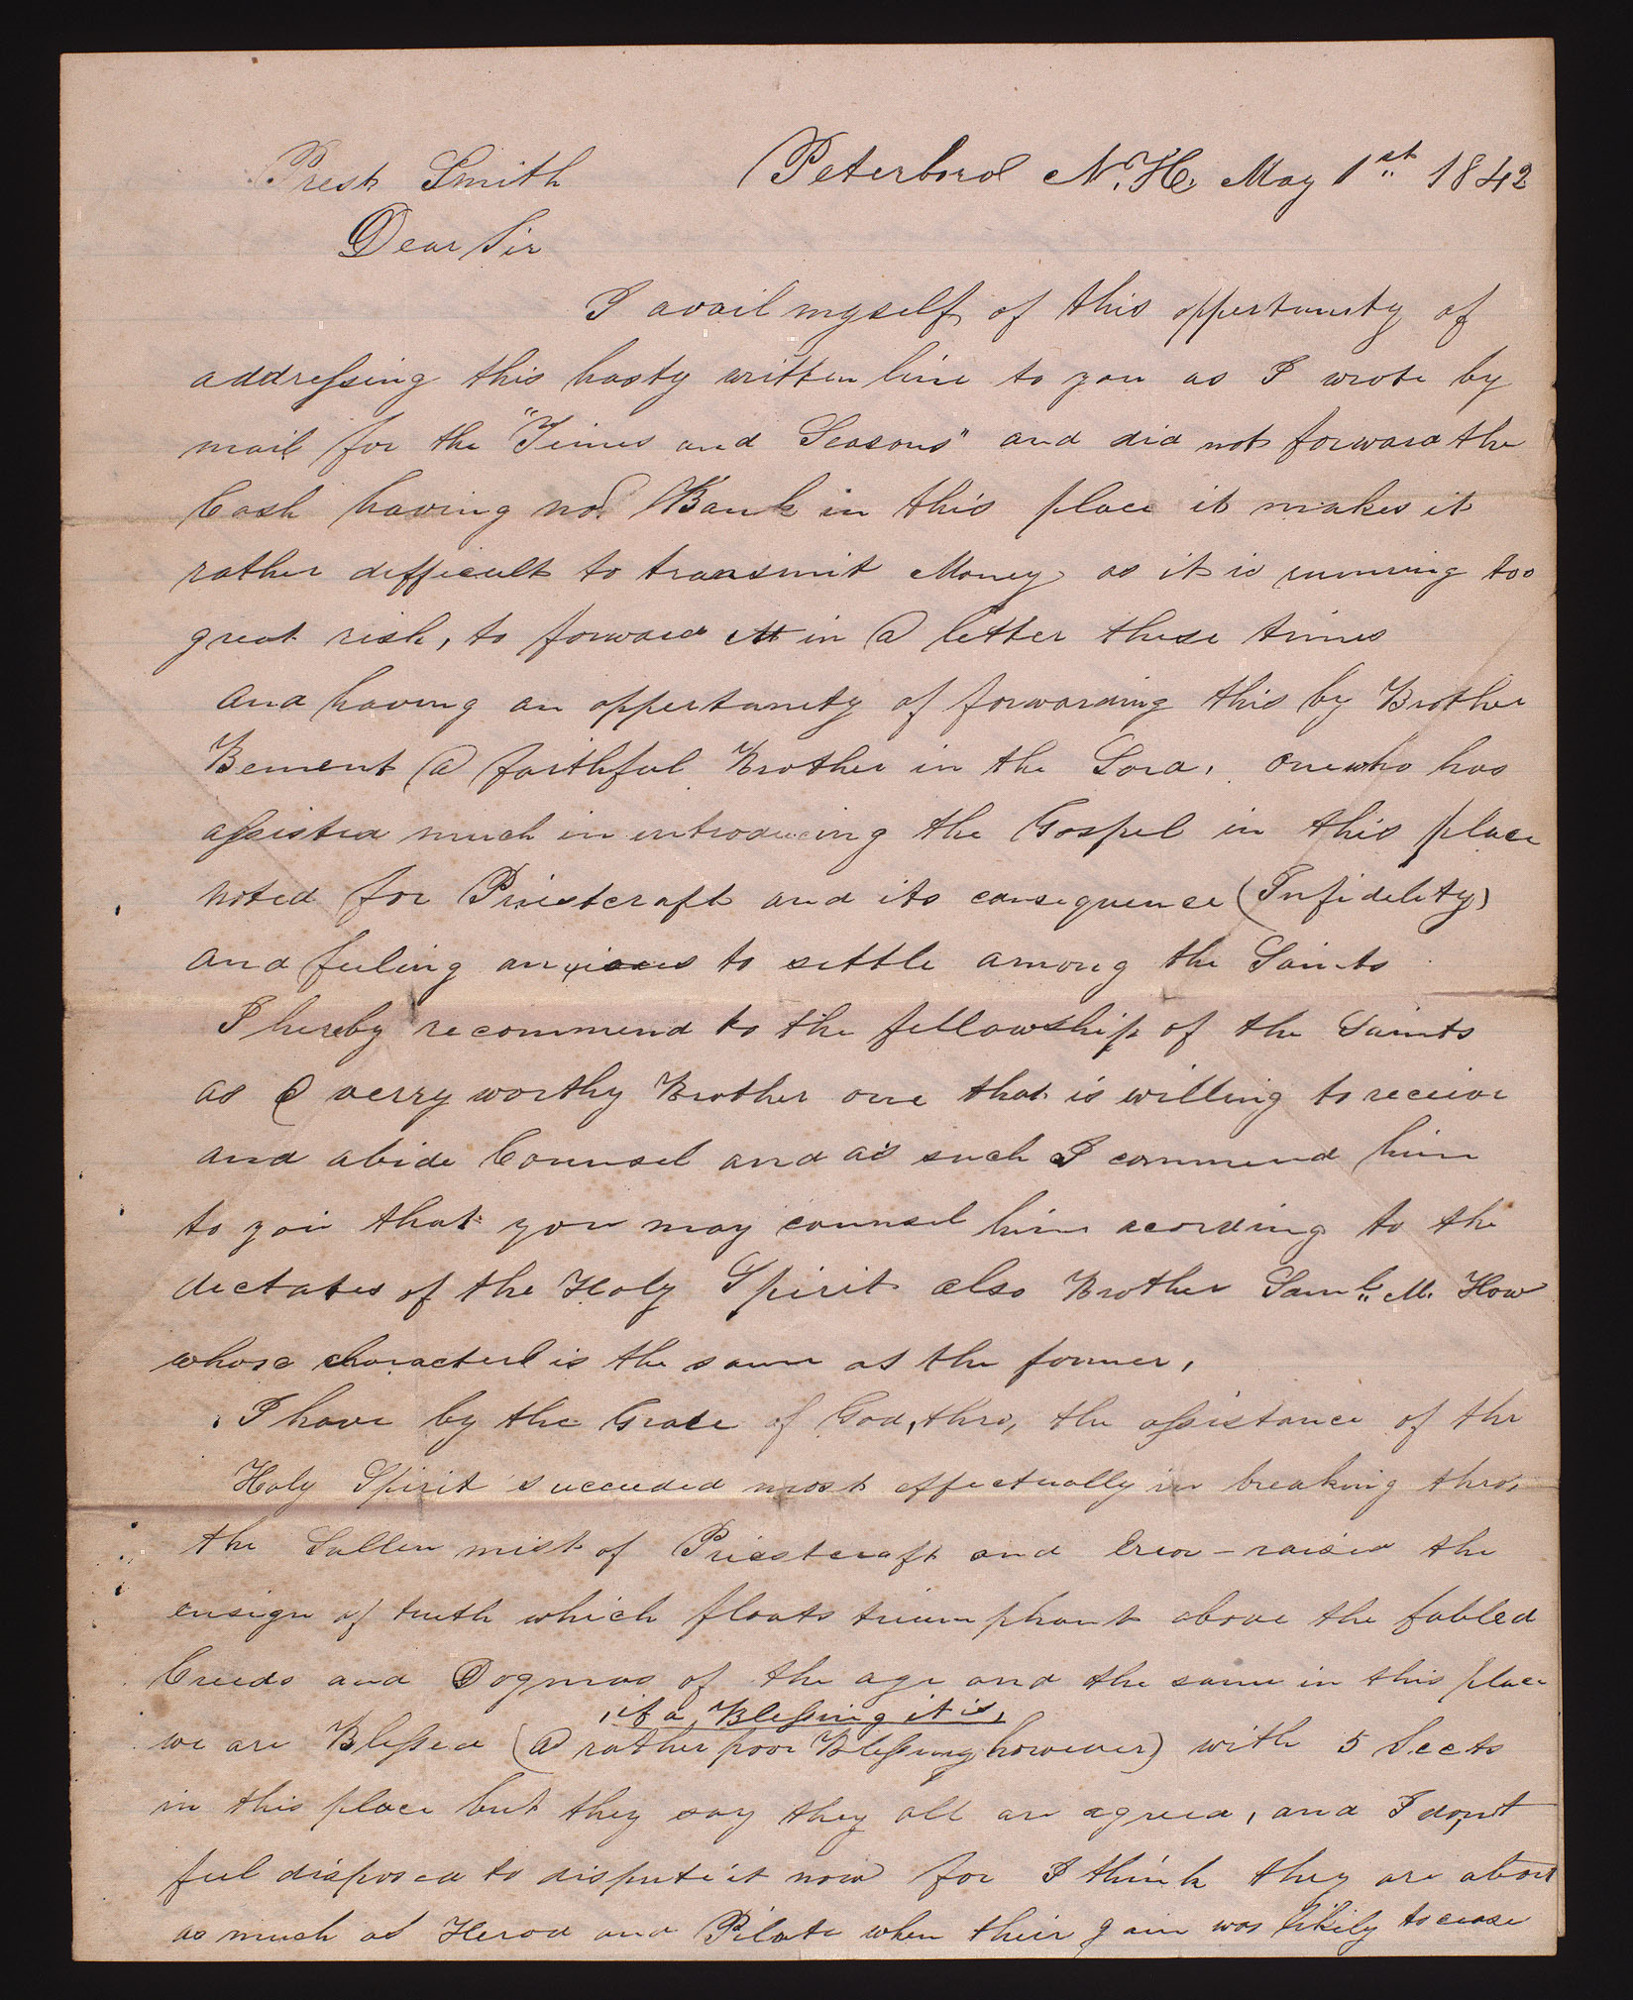 Peterboro N.H. May 1st 1842
Prest Smith
Dear Sir
I avail myself of this oppertunity of
addressing this hasty written line to you as I wrote by
mail for the "Times and Seasons" and did not forward the
Cash having no Bank in this place it makes it
rather difficult to transmit Money as it is running too
great risk, to forward it in a letter these times
and having an oppertunity of forwarding this by Brother
Bement a faithful Brother in the Lord, one who has
assisted much in introducing the Gospel in this place
noted for Priestcraft and its consequence (Infidelity)
and feeling anxious to settle among the Saints
I hereby recommend to the fellowship of the Saints
as a verry worthy Brother one that is willing to receive
and abide Counsel and as such I commend him
to you that you may counsel him acording to the
dictates of the Holy Spirit also Brother Saml. M. How
whose character is the same as the former,
I have by the Grace of God, thro, the assistance of the
Holy Spirit succeeded most effectually in breaking thro,
the Sullen mist of Priestcraft and Eror - raised the
ensign of truth which floats triumphant above the fabled
Creeds and Dogmas of the age and the same in this place
, if a Blessing it is,
we are Blessed (a rather poor Blessing however) with 5 Sects
in this place but they say they all are agreed, and I dont
feel disposed to dispute it now for I think they are about
as much as Herod and Pilate when their gain was likily to cease